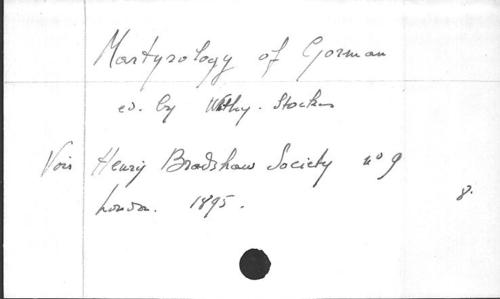 Martyrology of Gorman
ed. by Withy. Stockes
Vois Henry Bradshaw Society no 9
London. 1895.
8.